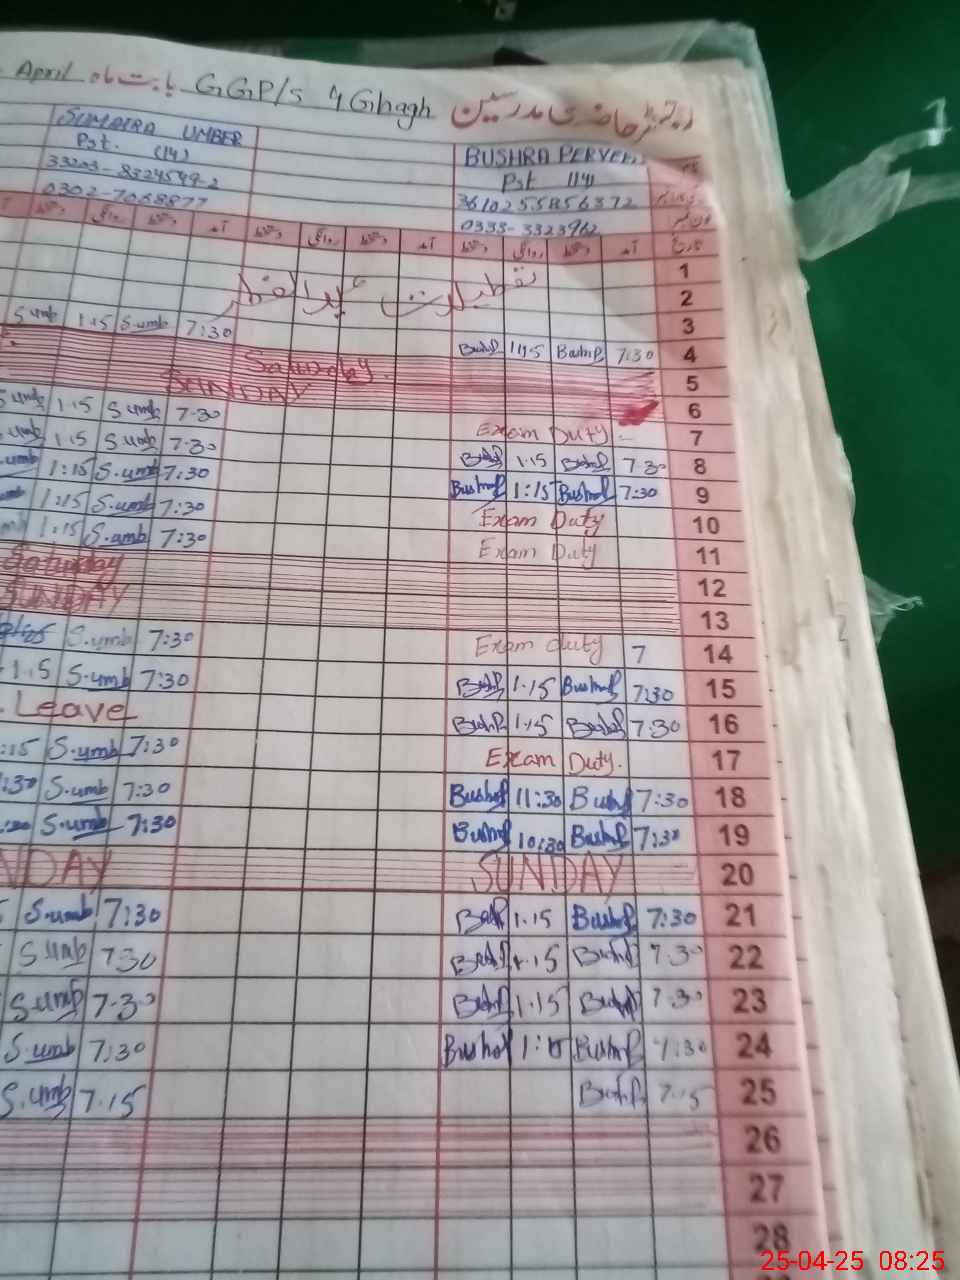 April بابت ماہ GGP/S 4 Ghagh رجسٹر حاضری مدرسین
SUMAIRA UMBER BUSHRA PERVEEN
Pst. (14) Pst (14)
33203-8324549-2 3610255856372
0302-7068877 0333-3323962
دستخط روانگی دستخط آمد دستخط روانگی دستخط آمد دستخط روانگی دستخط آمد تاریخ
1
تعطیلات عیدالفطر 2
3
S.umb 1.15 S.umb 7:30 Bushf 1:15 Bushf 7:30 4
Saturday 5
SUNDAY 6
S.umb 1.15 S.umb 7.30 Exam Duty 7
S.umb 1.15 S.umb 7.30 Bushf 1.15 Bushf 7.30 8
S.umb 1:15 S.umb 7:30 Bushf 1:15 Bushf 7:30 9
1:15 S.umb 7:30 Exam Duty 10
1:15 S.umb 7:30 Exam Duty 11
Saturday 12
SUNDAY 13
S.umb 7:30 Exam duty 7 14
1.15 S.umb 7:30 Bushf 1.15 Bushf 7:30 15
Leave Bushf 1.15 Bushf 7.30 16
:15 S.umb 7:30 Exam Duty. 17
:30 S.umb 7:30 Bushf 11:30 Bushf 7:30 18
S.umb 7:30 Bushf 10:30 Bushf 7:30 19
NDAY SUNDAY 20
S.umb 7:30 Bushf 1.15 Bushf 7:30 21
S.umb 7:30 Bushf 1.15 Bushf 7.30 22
S.umb 7.30 Bushf 1.15 Bushf 7.30 23
S.umb 7:30 Bushf 1:15 Bushf 7:30 24
S.umb 7.15 Bushf 7.15 25
26
27
28
25-04-25 08:25